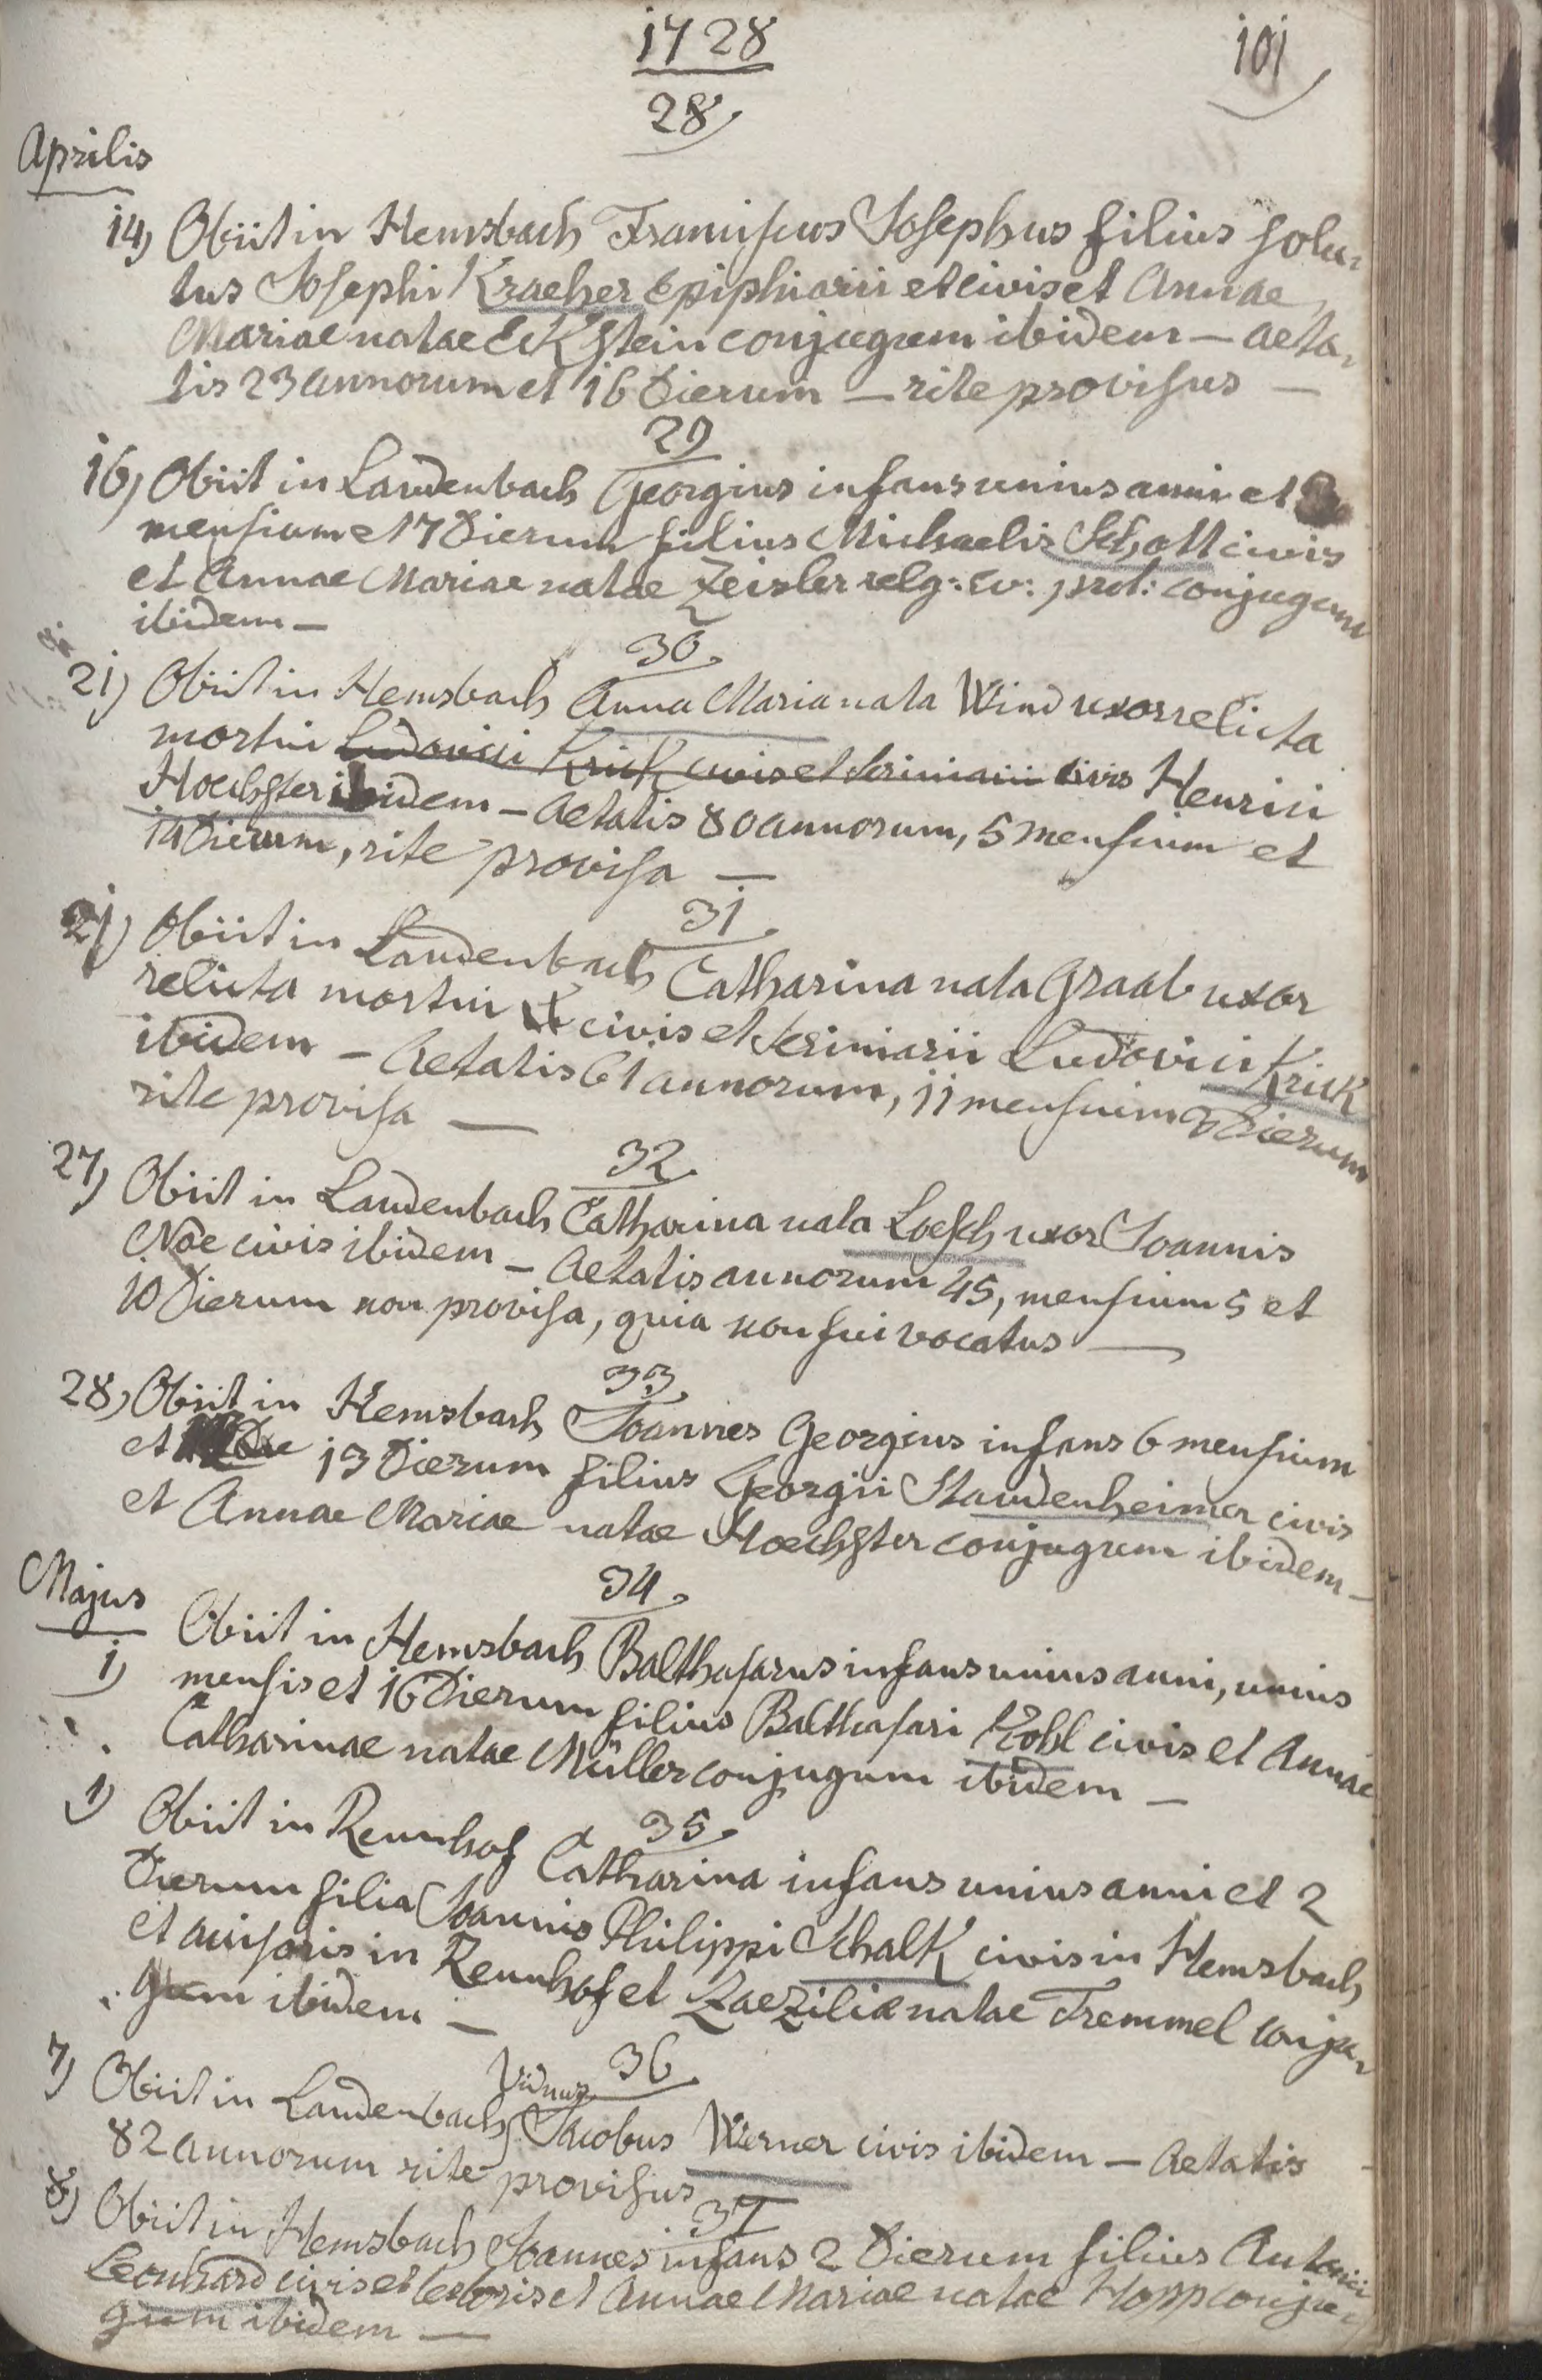 1728
101
28
Aprilis
14) Obiit in Hemsbach Franciscus Josephus filius solu-
tus Josephi Kraeher Epiphiarii et civis et Annae
Mariae natae Eckstein conjugum ibidem — aeta-
tis 23 annorum et 16 Dierum — rite provisus —
29
16) Obiit in Laudenbach Georgius infans unius anni et
mensium et 17 Dierum filius Michaelis Schott civis
et Annae Mariae natae Zeisler relg: ev: prot: conjugum
ibidem —
30.
21) Obiit in Hemsbach Anna Maria nata Wind uxor relicta
mortui Ludovici Krick civis et scriniarii civis Henrici
Hoechster ibidem — Aetatis 80 annorum, 5 mensium et
14 Dierum, rite provisa —
31.
21) Obiit in Laudenbach Catharina nata Graab uxor
relicta mortui civis et Scriniarii Ludovici Krick
ibidem — Aetatis 61 annorum, 11 mensium Dierum
rite provisa —
32.
27) Obiit in Laudenbach Catharina nata Loesch uxor Joannis
Noe civis ibidem — Aetatis annorum 45, mensium 5 et
10 Dierum non provisa, quia non fui vocatus —
33.
28) Obiit in Hemsbach Joannes Georgius infans 6 mensium
et 13 Dierum filius Georgii Staudenheimer civis
et Annae Mariae natae Hoechster conjugum ibidem —
Majus
34.
1) Obiit in Hemsbach Balthasarus infans unius anni, unius
mensis et 16 Dierum filius Balthasari Kohl civis et Annae
Catharinae natae Müller conjugum ibidem —
35.
1) Obiit in Rennhof Catharina infans unius anni et 2
Dierum filia Joannis Philippi Schalk civis in Hemsbach
et in Rennhof et Zaeziliae natae Tremmel conju-
gum ibidem —
36.
7) Obiit in Laudenbach Viduus Jacobus Werner civis ibidem — Aetatis
82 annorum rite provisus
37
8) Obiit in Hemsbach Joannes infans 2 Dierum filius Antonii
Leonhard civis et textoris et Annae Mariae natae Hopp conju-
gum ibidem —